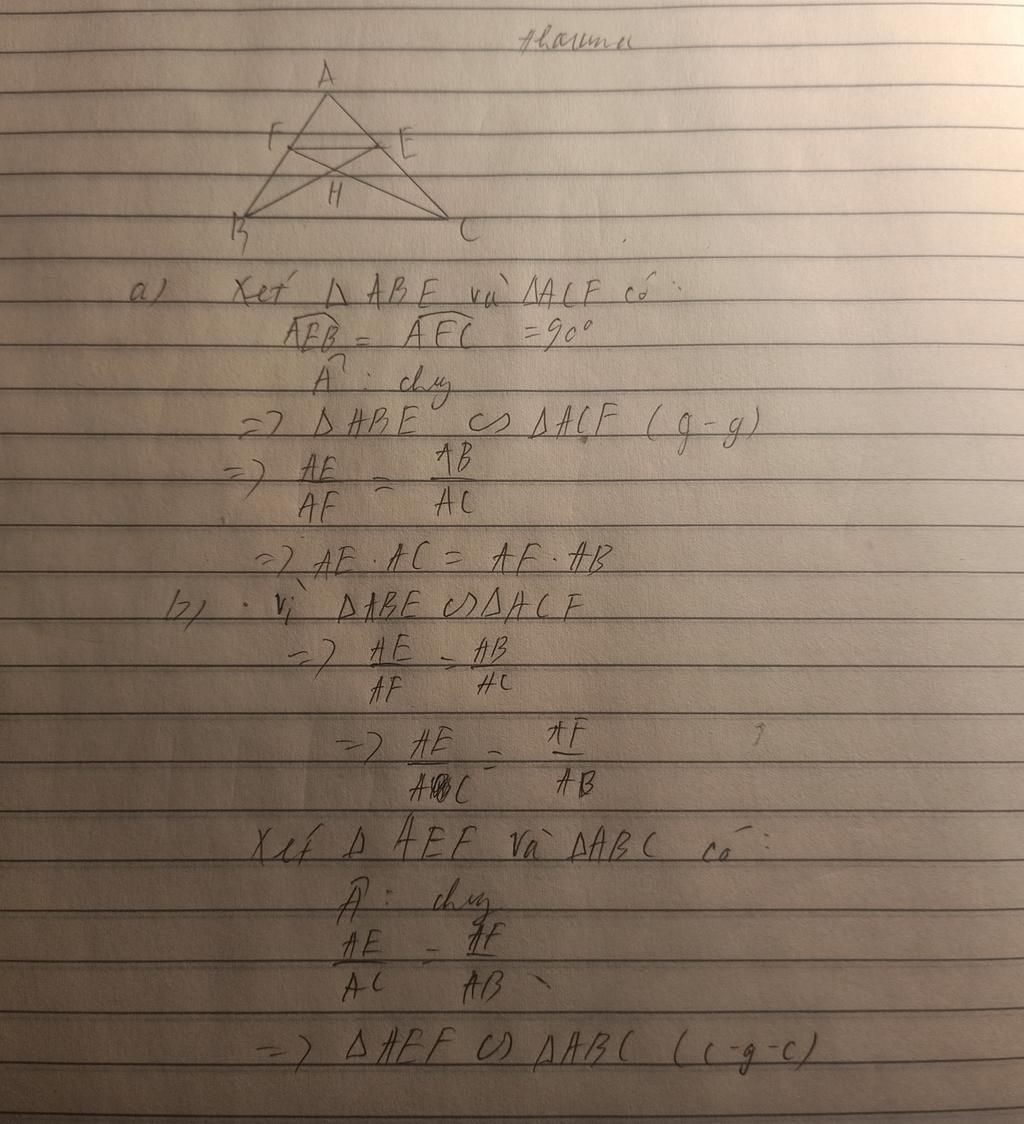 A
F E
H
B C
a) Xét Δ ABE và ΔACF có:
AEB = AFC = 90°
A : chg
=> Δ ABE ∽ ΔACF (g-g)
=> AE/AF = AB/AC
=> AE . AC = AF . AB
b) . Vì ΔABE ∽ ΔACF
=> AE/AF = AB/AC
=> AE/AC = AF/AB
Xét Δ AEF và ΔABC có:
A : chg
AE/AC = AF/AB
=> ΔAEF ∽ ΔABC (c-g-c)